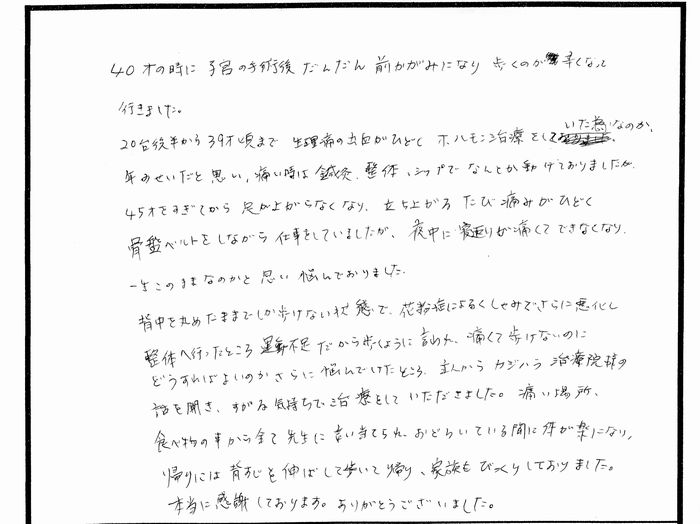 40才の時に 子宮の手術後 だんだん 前かがみになり 歩くのが辛くなって
行きました。
20台後半から39才頃まで 生理痛の出血がひどく ホルモン治療をしていた為なのか、
年のせいだと思い、痛い時は鍼灸、整体、シップでなんとか動けておりましたが
45才をすぎてから 足が上がらなくなり、立ち上がるたび痛みがひどく
骨盤ベルトをしながら仕事をしていましたが、夜中に寝返りが痛くてできなくなり、
一生このままなのかと思い 悩んでおりました。
背中を丸めたままでしか歩けない状態で、花粉症によるくしゃみでさらに悪化し
整体へ行ったところ 運動不足だから歩くように言われ、痛くて歩けないのに
どうすればよいのかさらに悩んでいたところ、主人からカジハラ治療院様の
話を聞き、すがる気持ちで治療をしていただきました。痛い場所、
食べ物の事から全て先生に言い当てられ、おどろいている間に体が楽になり、
帰りには背すじを伸ばして歩いて帰り、家族もびっくりしておりました。
本当に感謝しております。ありがとうございました。